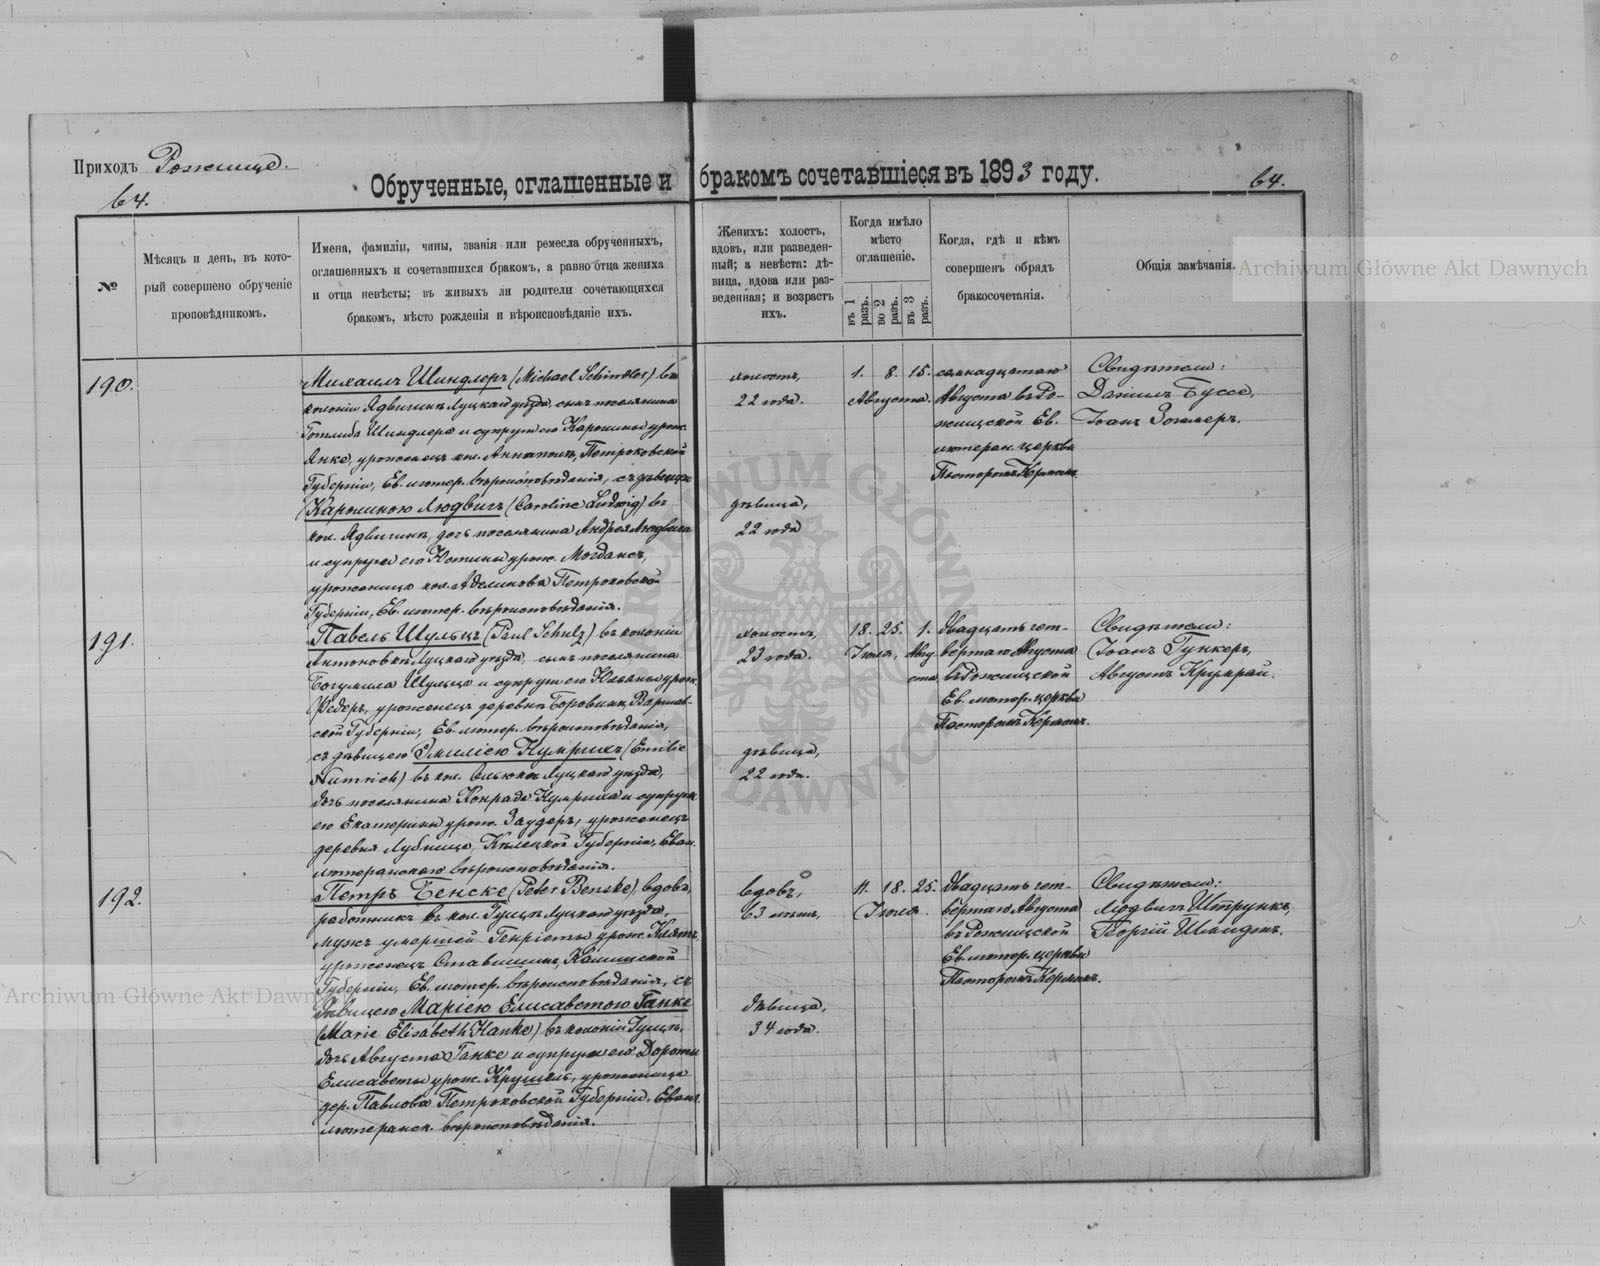 Приходъ Рожище.
64.
Обрученные, оглашенные и бракомъ сочетавшіеся въ 1893 году.
64.
№
Мѣсяцъ и день, въ кото-
рый совершено обрученіе
проповѣдникомъ.
Имена, фамиліи, чины, званія или ремесла обрученныхъ,
оглашенныхъ и сочетавшихся бракомъ, а равно отца жениха
и отца невѣсты; въ живыхъ ли родители сочетающихся
бракомъ, мѣсто рожденія и вѣроисповѣданіе ихъ.
Женихъ: холостъ,
вдовъ, или разведен-
ный; а невѣста: дѣ-
вица, вдова или раз-
веденная; и возрастъ
ихъ.
Когда имѣло
мѣсто
оглашеніе.
въ 1 разъ.
во 2 разъ.
въ 3 разъ.
Когда, гдѣ и кѣмъ
совершенъ обрядъ
бракосочетанія.
Общія замѣчанія.
190.
Михаилъ Шиндлеръ (Michael Schindler) въ
колоніи Ядвигинъ Луцкаго уѣзда, сынъ поселянина
Готлиба Шиндлера и супруги его Каролины урож.
Янке, уроженецъ кол. Аннополь, Петроковской
Губерніи, Ев. лютер. вѣроисповѣданія, съ дѣвицею
Каролиною Людвигъ (Caroline Ludwig) въ
кол. Ядвигинъ, дочь поселянина Андрея Людвига
и супруги его Юстины урож.
уроженица кол. Аделинова Петроковской
Губерніи, Ев. лютер. вѣроисповѣданія.
холостъ,
22 года.
дѣвица,
22 года
1. 8. 15.
Августа.
семнадцатаго
Августа въ Ро-
жищской Ев.
лютеран. церкви
Пасторомъ Керномъ
Свидѣтели:
Даніилъ Буссе,
Іоанъ Зоммеръ.
191.
Павелъ Шульцъ (Paul Schulz) въ колоніи
Антоновкѣ Луцкаго уѣзда, сынъ поселянина
Богумила Шульца и супруги его Юліаны урож.
Федеръ, уроженецъ деревни Боровикъ, Варшав-
ской Губерніи, Ев. лютер. вѣроисповѣданія,
съ дѣвицею Эмиліею Нумрихъ (Emilie
Numrich) въ кол. Луцкаго уѣзда,
дочь поселянина Конрада Нумриха и супруги
его Екатерины урож. Заудеръ, уроженецъ
деревни Лубница, Кѣлецкой Губерніи, Еван.
лютеранскаго вѣроисповѣданія.
холостъ,
23 года.
дѣвица,
22 года.
18. 25. 1.
Іюля, Авгу
ста
двадцать чет-
вертаго Августа
въ Рожищской
Ев. лютер. церкви
Пасторомъ Керномъ.
Свидѣтели:
Іоанъ Гункеръ,
Августъ Крумрай.
192.
Петръ Бенске (Peter Benske), вдовъ,
работникъ въ кол. Гущъ Луцкаго уѣзда,
мужъ умершей Генріеты урож. Клятъ,
уроженецъ Ставишинъ, Калишской
Губерніи, Ев. лютер. вѣроисповѣданія, съ
дѣвицею Маріею Елисаветою Ганке
(Marie Elisabeth Hanke) въ колоніи Гущъ,
дочь Августа Ганке и супруги его Доротеи
Елисаветы урож. Крушель, уроженица
дер. Павлова Петроковской Губерніи, Еванг.
лютеранск. вѣроисповѣданія.
вдовъ,
63 лѣтъ,
дѣвица,
34 года.
11. 18. 25.
Іюля.
двадцать чет-
вертаго Августа
въ Рожищской
Ев. лютер. церкви
Пасторомъ Керномъ.
Свидѣтели:
Людвигъ Штрункъ,
Георгій Шмидтъ.
Archiwum Główne Akt Dawnych
Archiwum Główne Akt Dawnych
ARCHIWUM GŁÓWNE AKT DAWNYCH